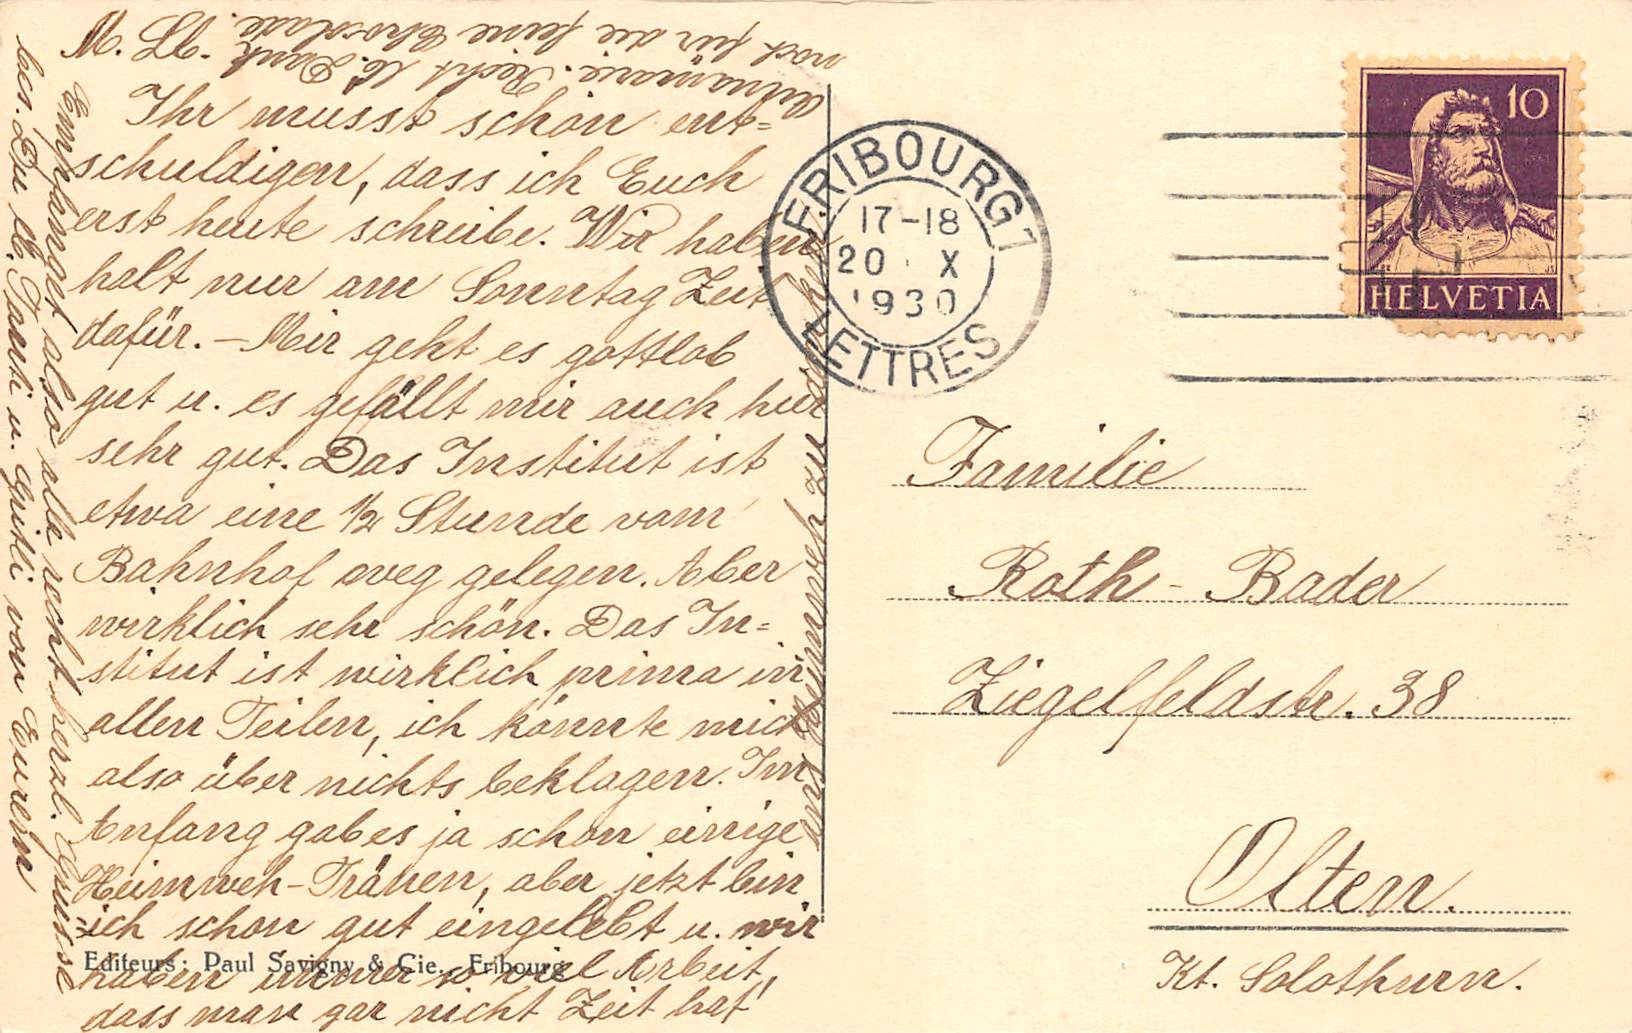 M. Lb.
Ihr müsst schön ent=
schuldigen, dass ich Euch
erst heute schreibe. Wir haben
halt nur am Sonntag Zeit
dafür. – Mir geht es gottlob
gut u. es gefällt mir auch hier
sehr gut. Das Institut ist
etwa eine 1/2 Stunde vom
Bahnhof weg gelegen. Aber
wirklich sehr schön. Das In=
stitut ist wirklich prima in
allen Teilen, ich könnte mich
also über nichts beklagen. Im
Anfang gab es ja schon einige
Heimweh-Tränen, aber jetzt bin
ich schon gut eingelebt u. wir
haben immer so viel Arbeit,
dass man gar nicht Zeit hat
ans Heimweh zu denken.
Empfanget also alle recht herzl. Grüsse
bes. Du lb. Tanti u. Guitli von Eurem
Annamarie. Recht lb. Dank
noch für die feine Chocolade.
Editeurs: Paul Savigny & Cie., Fribourg
FRIBOURG 1
17-18
20 X
1930
LETTRES
10
HELVETIA
Familie
Roth - Bader
Ziegelfeldstr. 38
Olten.
Kt. Solothurn.